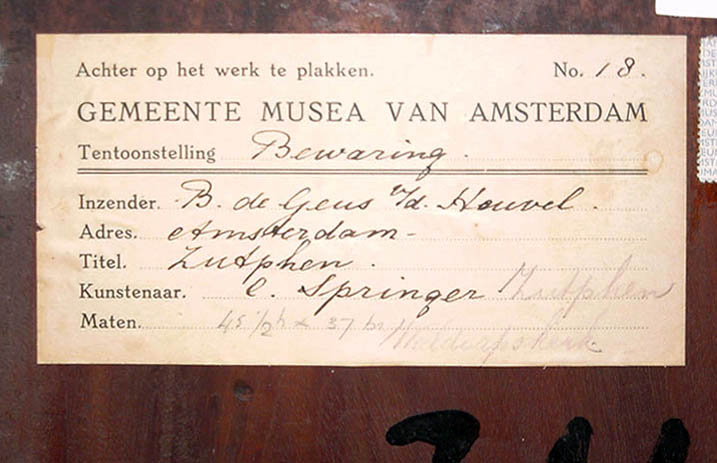 Achter op het werk te plakken. No. 18.
GEMEENTE MUSEA VAN AMSTERDAM
Tentoonstelling Bewaring.
Inzender. B. de Geus v/d. Heuvel.
Adres. Amsterdam-
Titel. Zutphen.
Kunstenaar. C. Springer Zutphen
Maten. 45 1/2 h x 37 br